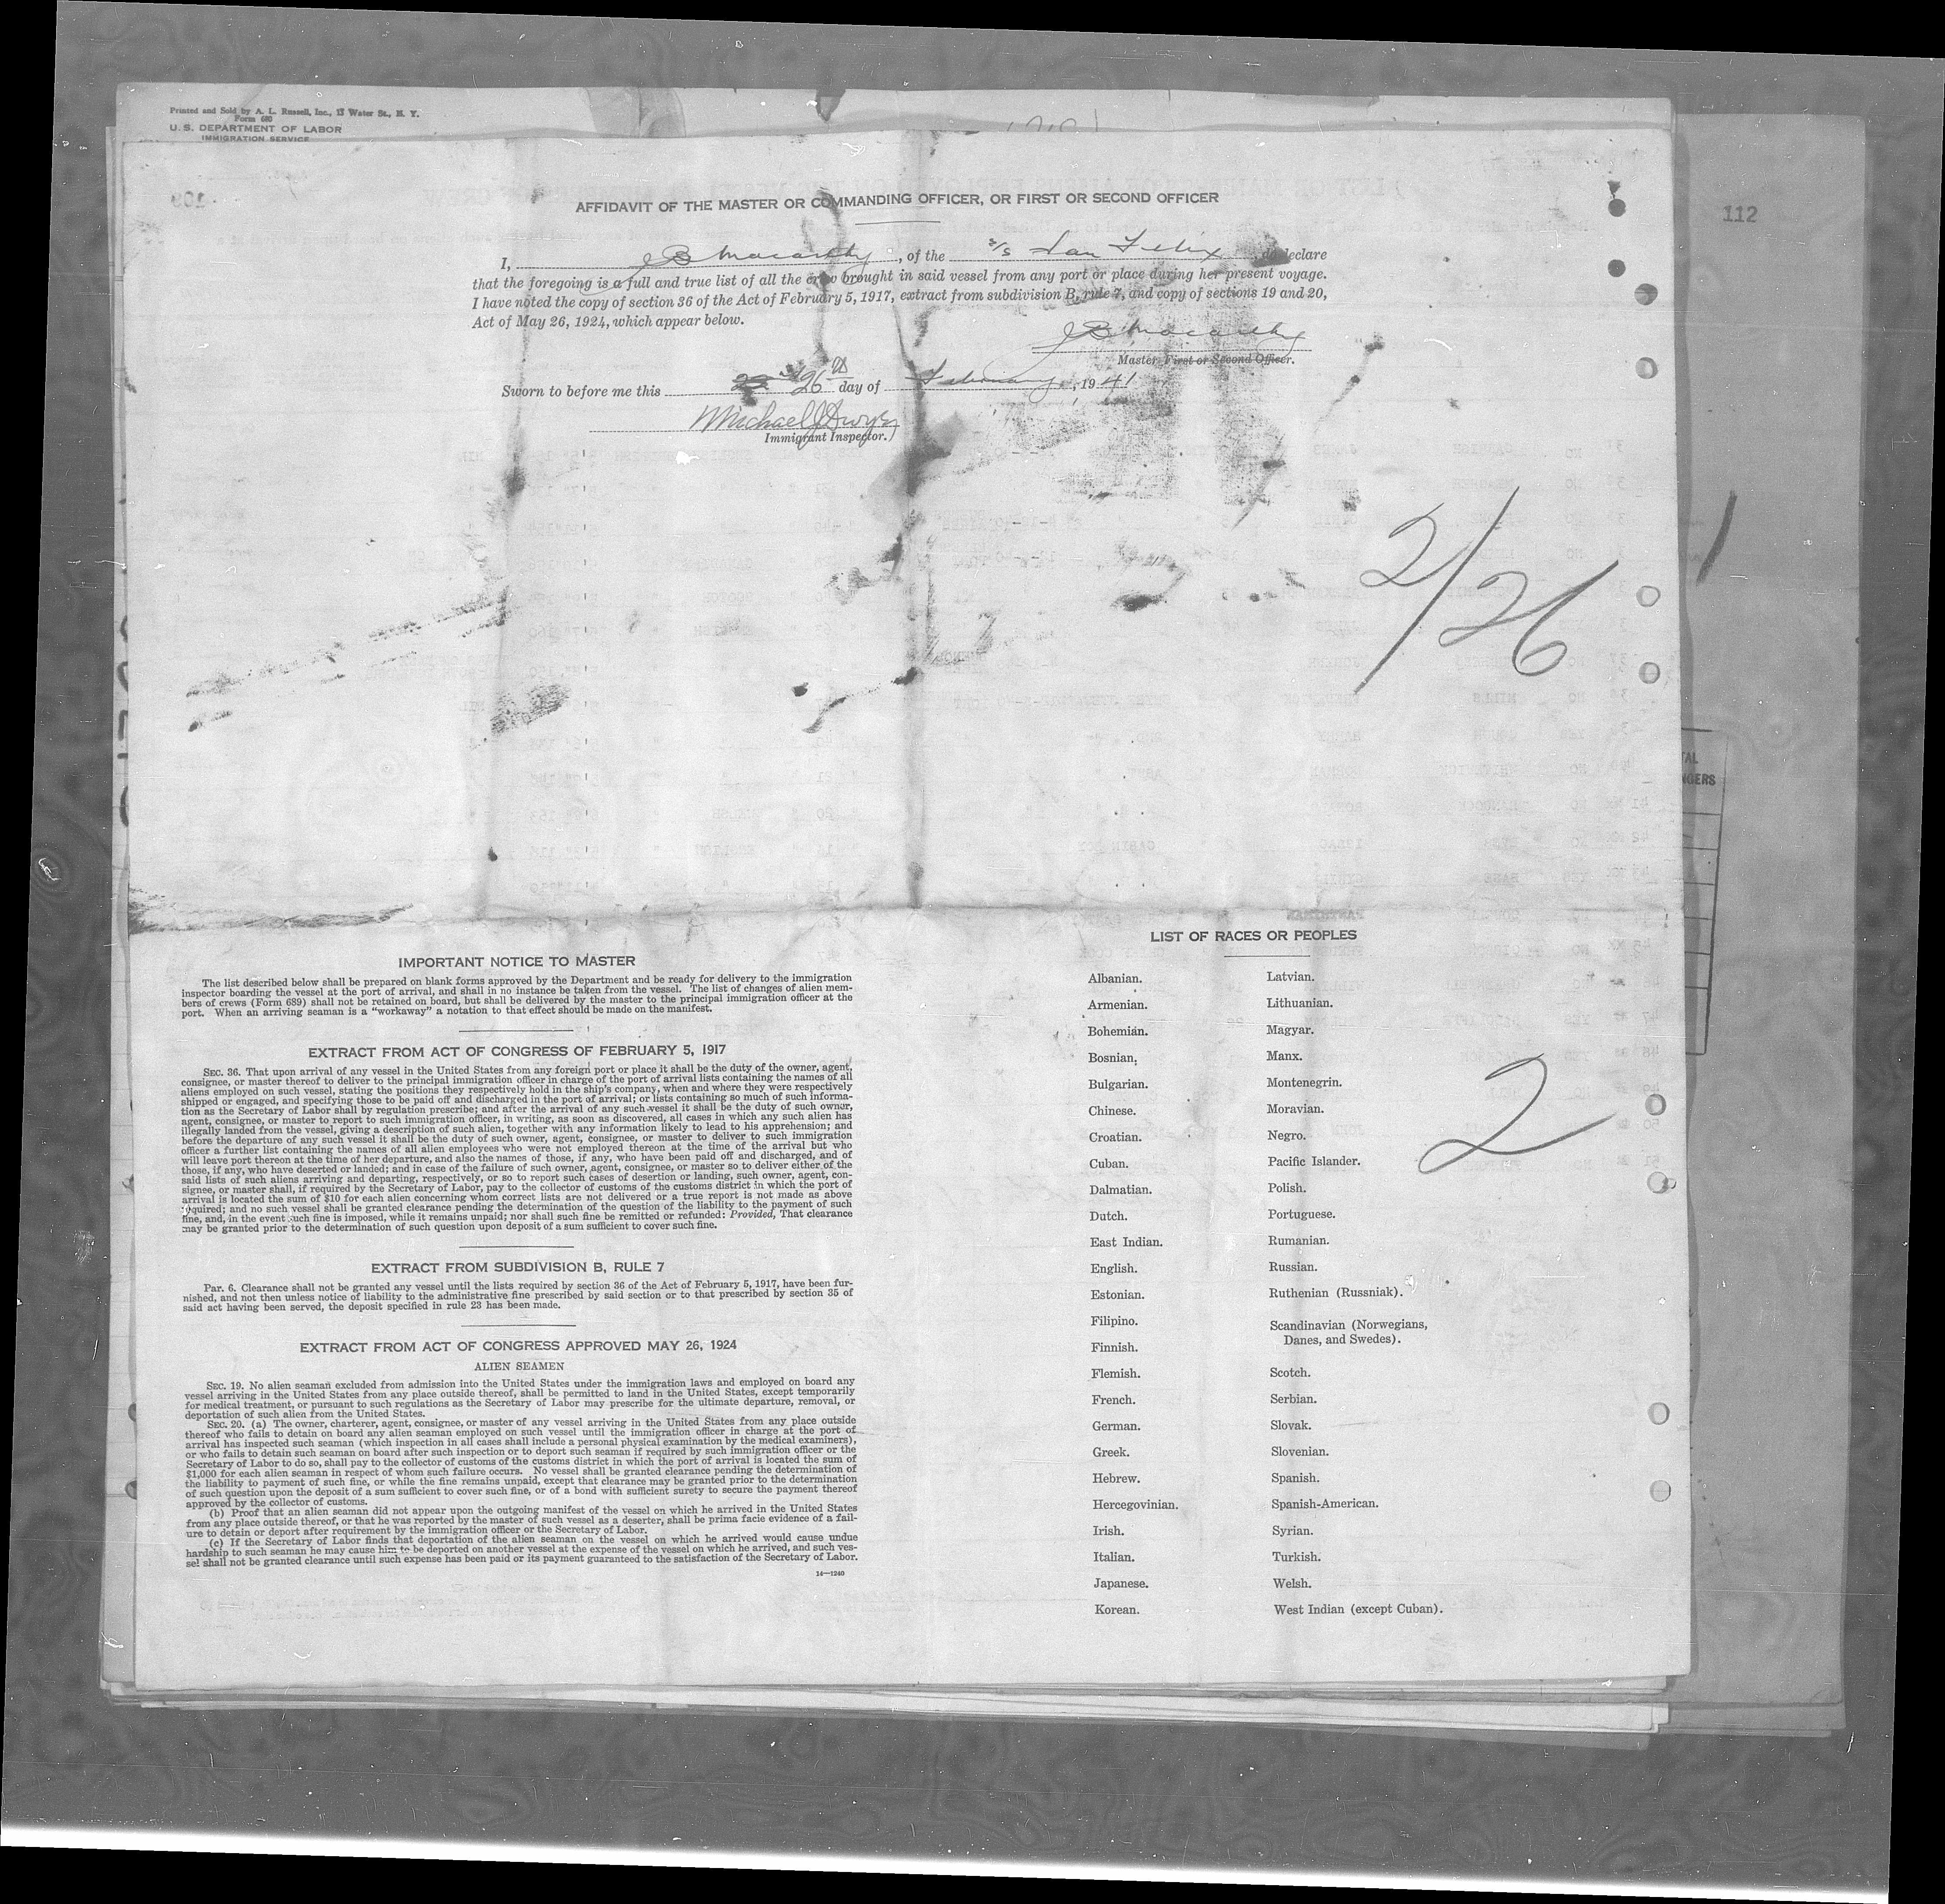 Printed and Sold by A. L. Russell, Inc., 17 Water St., N. Y.
Form 680
U. S. DEPARTMENT OF LABOR
IMMIGRATION SERVICE
112
AFFIDAVIT OF THE MASTER OR COMMANDING OFFICER, OR FIRST OR SECOND OFFICER
I, JB Macarthy, of the s/s San Felix, do declare
that the foregoing is a full and true list of all the crew brought in said vessel from any port or place during her present voyage.
I have noted the copy of section 36 of the Act of February 5, 1917, extract from subdivision B, rule 7, and copy of sections 19 and 20,
Act of May 26, 1924, which appear below.
JB Macarthy
Master, First or Second Officer.
Sworn to before me this 26th day of February, 1941
Michael J Dwyer
Immigrant Inspector.
2/26
IMPORTANT NOTICE TO MASTER
The list described below shall be prepared on blank forms approved by the Department and be ready for delivery to the immigration
inspector boarding the vessel at the port of arrival, and shall in no instance be taken from the vessel. The list of changes of alien mem-
bers of crews (Form 689) shall not be retained on board, but shall be delivered by the master to the principal immigration officer at the
port. When an arriving seaman is a "workaway" a notation to that effect should be made on the manifest.
EXTRACT FROM ACT OF CONGRESS OF FEBRUARY 5, 1917
SEC. 36. That upon arrival of any vessel in the United States from any foreign port or place it shall be the duty of the owner, agent,
consignee, or master thereof to deliver to the principal immigration officer in charge of the port of arrival lists containing the names of all
aliens employed on such vessel, stating the positions they respectively hold in the ship's company, when and where they were respectively
shipped or engaged, and specifying those to be paid off and discharged in the port of arrival; or lists containing so much of such informa-
tion as the Secretary of Labor shall by regulation prescribe; and after the arrival of any such vessel it shall be the duty of such owner,
agent, consignee, or master to report to such immigration officer, in writing, as soon as discovered, all cases in which any such alien has
illegally landed from the vessel, giving a description of such alien, together with any information likely to lead to his apprehension; and
before the departure of any such vessel it shall be the duty of such owner, agent, consignee, or master to deliver to such immigration
officer a further list containing the names of all alien employees who were not employed thereon at the time of the arrival but who
will leave port thereon at the time of her departure, and also the names of those, if any, who have been paid off and discharged, and of
those, if any, who have deserted or landed; and in case of the failure of such owner, agent, consignee, or master so to deliver either of the
said lists of such aliens arriving and departing, respectively, or so to report such cases of desertion or landing, such owner, agent, con-
signee, or master shall, if required by the Secretary of Labor, pay to the collector of customs of the customs district in which the port of
arrival is located the sum of $10 for each alien concerning whom correct lists are not delivered or a true report is not made as above
required; and no such vessel shall be granted clearance pending the determination of the question of the liability to the payment of such
fine, and, in the event such fine is imposed, while it remains unpaid; nor shall such fine be remitted or refunded: Provided, That clearance
may be granted prior to the determination of such question upon deposit of a sum sufficient to cover such fine.
EXTRACT FROM SUBDIVISION B, RULE 7
Par. 6. Clearance shall not be granted any vessel until the lists required by section 36 of the Act of February 5, 1917, have been fur-
nished, and not then unless notice of liability to the administrative fine prescribed by said section or to that prescribed by section 35 of
said act having been served, the deposit specified in rule 23 has been made.
EXTRACT FROM ACT OF CONGRESS APPROVED MAY 26, 1924
ALIEN SEAMEN
SEC. 19. No alien seaman excluded from admission into the United States under the immigration laws and employed on board any
vessel arriving in the United States from any place outside thereof, shall be permitted to land in the United States, except temporarily
for medical treatment, or pursuant to such regulations as the Secretary of Labor may prescribe for the ultimate departure, removal, or
deportation of such alien from the United States.
SEC. 20. (a) The owner, charterer, agent, consignee, or master of any vessel arriving in the United States from any place outside
thereof who fails to detain on board any alien seaman employed on such vessel until the immigration officer in charge at the port of
arrival has inspected such seaman (which inspection in all cases shall include a personal physical examination by the medical examiners),
or who fails to detain such seaman on board after such inspection or to deport such seaman if required by such immigration officer or the
Secretary of Labor to do so, shall pay to the collector of customs of the customs district in which the port of arrival is located the sum of
$1,000 for each alien seaman in respect of whom such failure occurs. No vessel shall be granted clearance pending the determination of
the liability to payment of such fine, or while the fine remains unpaid, except that clearance may be granted prior to the determination
of such question upon the deposit of a sum sufficient to cover such fine, or of a bond with sufficient surety to secure the payment thereof
approved by the collector of customs.
(b) Proof that an alien seaman did not appear upon the outgoing manifest of the vessel on which he arrived in the United States
from any place outside thereof, or that he was reported by the master of such vessel as a deserter, shall be prima facie evidence of a fail-
ure to detain or deport after requirement by the immigration officer or the Secretary of Labor.
(c) If the Secretary of Labor finds that deportation of the alien seaman on the vessel on which he arrived would cause undue
hardship to such seaman he may cause him to be deported on another vessel at the expense of the vessel on which he arrived, and such ves-
sel shall not be granted clearance until such expense has been paid or its payment guaranteed to the satisfaction of the Secretary of Labor.
14—1240
LIST OF RACES OR PEOPLES
Albanian.
Armenian.
Bohemian.
Bosnian.
Bulgarian.
Chinese.
Croatian.
Cuban.
Dalmatian.
Dutch.
East Indian.
English.
Estonian.
Filipino.
Finnish.
Flemish.
French.
German.
Greek.
Hebrew.
Hercegovinian.
Irish.
Italian.
Japanese.
Korean.
Latvian.
Lithuanian.
Magyar.
Manx.
Montenegrin.
Moravian.
Negro.
Pacific Islander.
Polish.
Portuguese.
Rumanian.
Russian.
Ruthenian (Russniak).
Scandinavian (Norwegians,
Danes, and Swedes).
Scotch.
Serbian.
Slovak.
Slovenian.
Spanish.
Spanish-American.
Syrian.
Turkish.
Welsh.
West Indian (except Cuban).
2